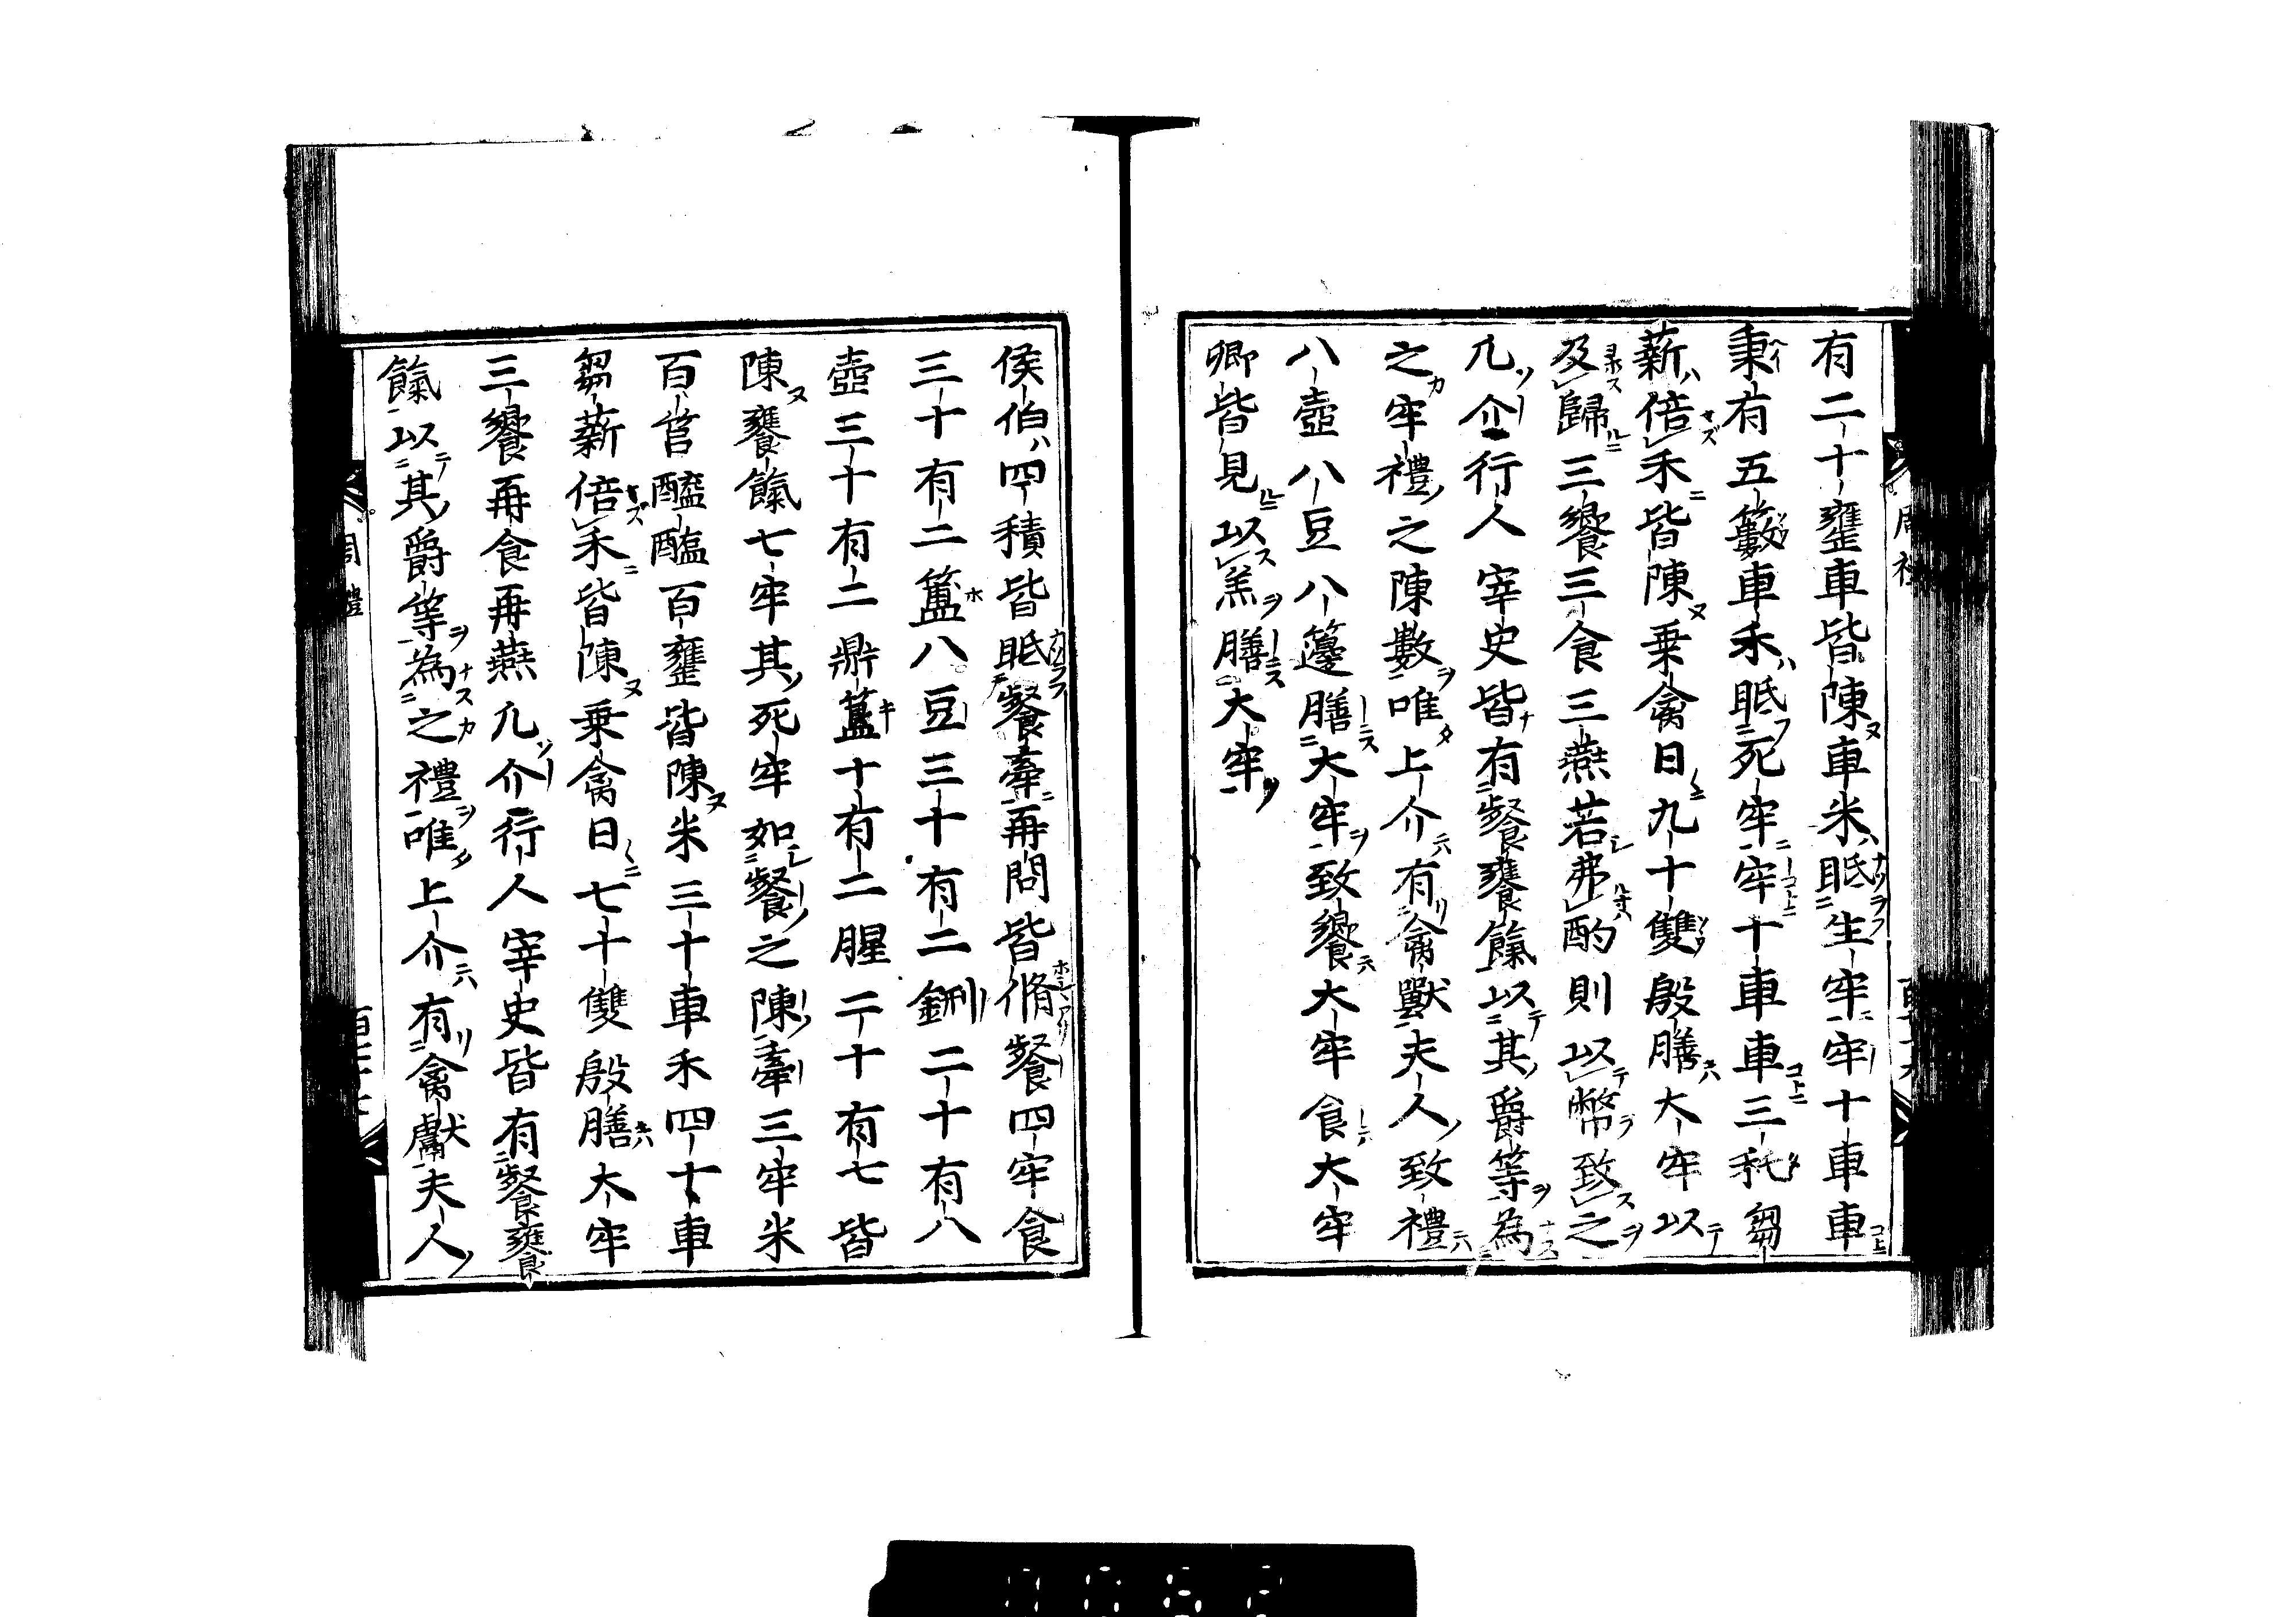 有二十壅車皆陳車米眡生牢牢十車車
秉有五籔車禾眡死牢牢十車車三秅芻
薪倍禾皆陳乗禽日九十雙殷膳大牢以
及歸三饗三食三燕若弗酌則以幣致之
凢介行人宰史皆有飱饔餼以其爵等為
之牢禮之陳數唯上介有禽獸夫人致禮
八壺八豆八籩膳大牢致饗大牢食大牢
卿皆見以羔膳大牢
侯伯四積皆眡飱牽再問皆脩飱四牢食
三十有二簠八豆三十有二鉶二十有八
壺三十有二鼎簋十有二腥二十有七皆
陳饔餼七牢其死牢如飱之陳牽三牢米
百筥醯醢百罋皆陳米三十車禾四十車
芻薪倍禾皆陳乗禽日七十雙殷膳大牢
三饗再食再燕凢介行人宰史皆有飱饔
餼以其爵等為之禮唯上介有禽獻夫人